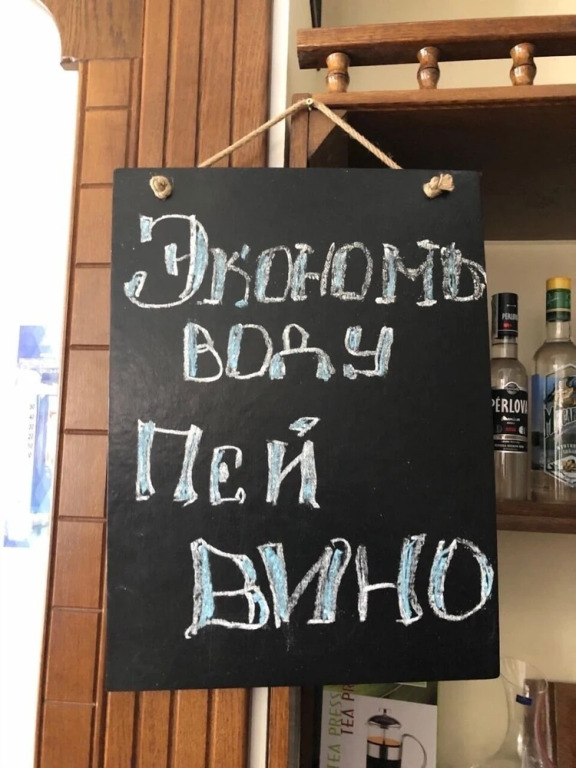 Экономь
воду
Пей
вино
PERLOVA
PERLOVA
TEA PRESS
TEA PR